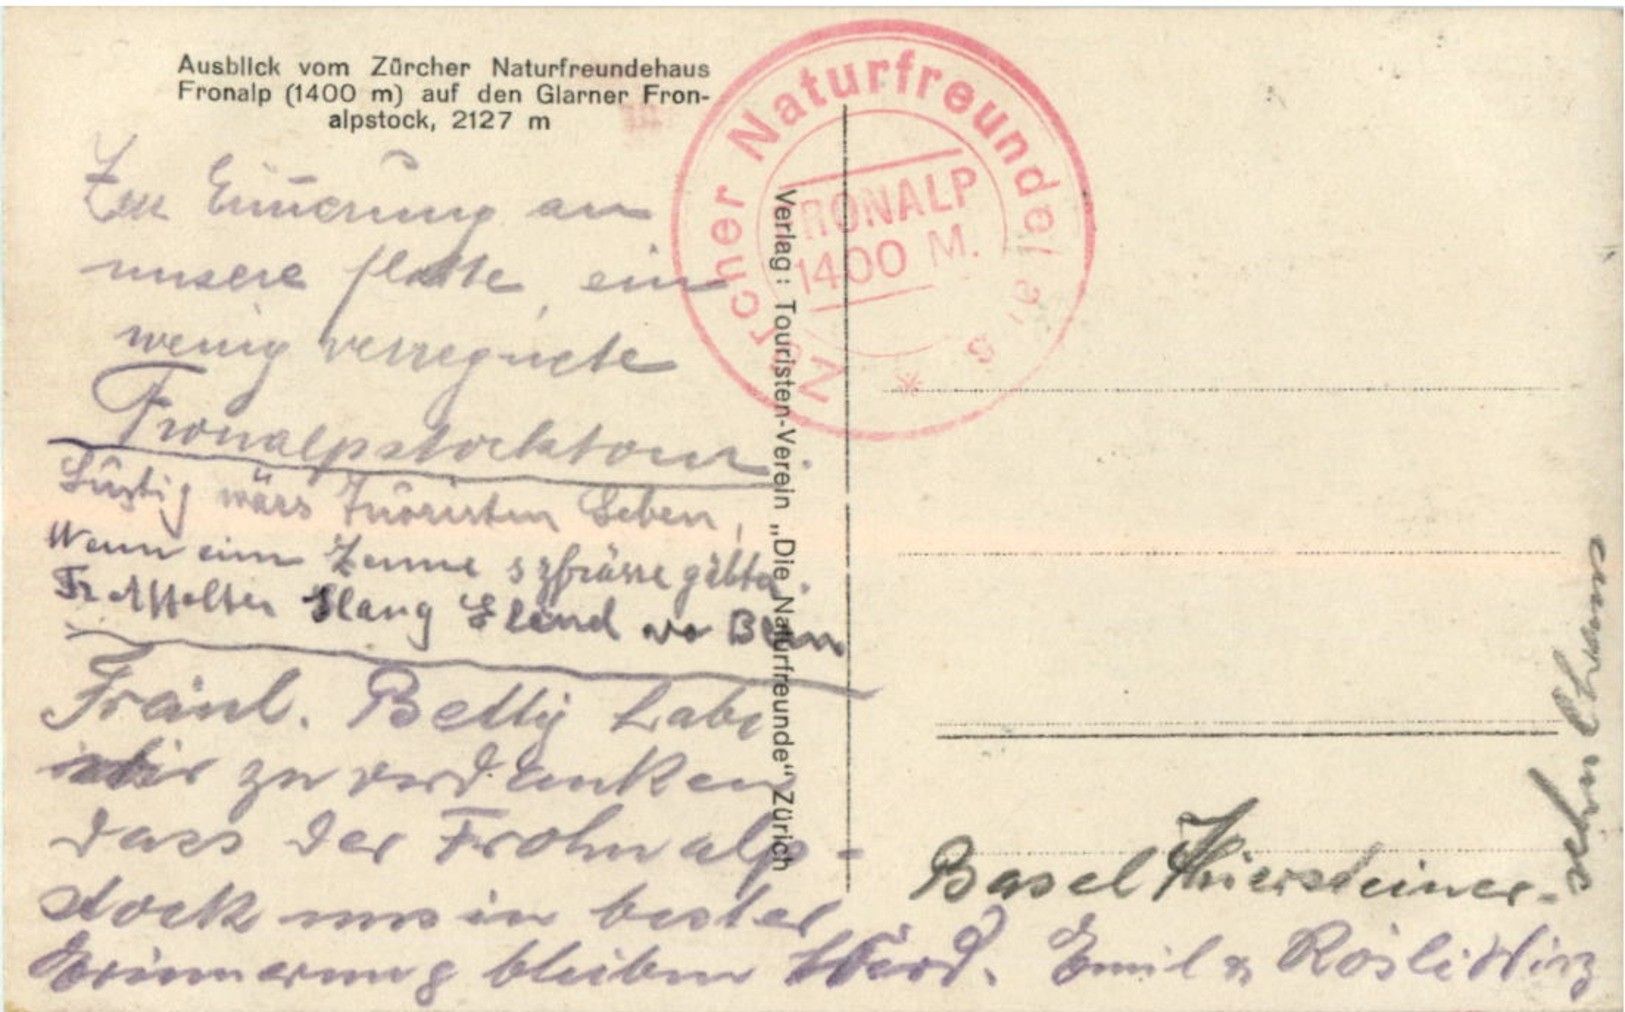 Ausblick vom Zürcher Naturfreundehaus
Fronalp (1400 m) auf den Glarner Fron-
alpstock, 2127 m
Zürcher Naturfreundehaus
FRONALP
1400 M.
Verlag: Touristen-Verein „Die Naturfreunde" Zürich
Zur Erinnerung an
unsere flotte, ein
wenig verregnete
Fronalpstocktour.
Lustig wärs Turisten Leben,
Wenn eim Zenne
Elend
Fräul. Betty
zu verdanken
dass der Frohnalp-
stock uns in bester
Erinnerung bleiben wird. Emil & Rösli Wirz
Basel Thiersteiner-